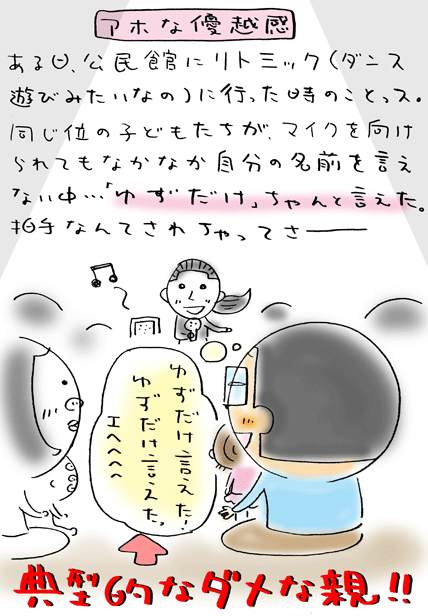 アホな優越感
ある日、公民館にリトミック(ダンス
遊びみたいなの)に行った時のことっス。
同じ位の子どもたちが、マイクを向け
られてもなかなか自分の名前を言え
ない中…「ゆずだけ」ちゃんと言えた。
拍手なんてされちゃってさーーー
ゆずだけ言えた!
ゆずだけ言えた。
エヘヘヘヘ
典型的なダメな親!!